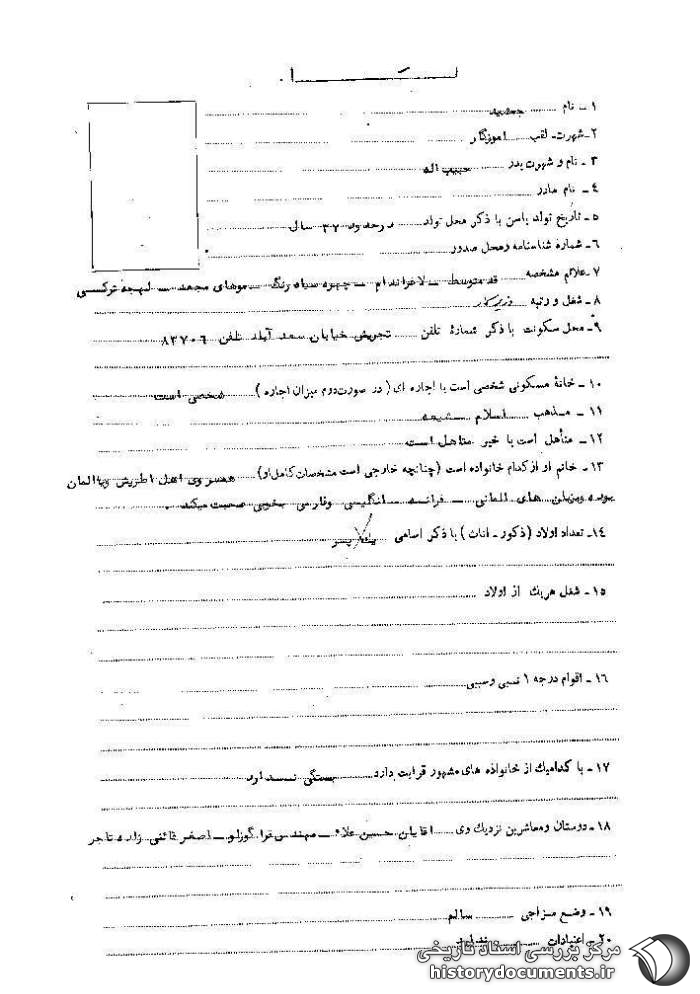 ۱ - نام جمشید
۲ - شهرت - لقب اموزگار
۳ - نام و شهرت پدر حبیب اله
۴ - نام مادر
۵ - تاریخ تولد یاسن با ذکر محل تولد درحدود ۳۷ سال
۶ - شمارهٔ شناسنامه ومحل صدور
۷ - علائم مشخصه قد متوسط - لاغراندام - چهره سیاه رنگ - موهای مجعد - لهجهٔ ترکسی
۸ - شغل و رتبه وزیر کار
۹ - محل سکونت با ذکر شمارهٔ تلفن تجریش خیابان سعد آباد تلفن ۸۳۷۰۶
۱۰ - خانهٔ مسکونی شخصی است یا اجاره ای ( در صورت دوم میزان اجاره ) شخصی است
۱۱ - مذهب اسلام شیعه
۱۲ - متأهل است یا خیر متاهل است
۱۳ - خانم او از کدام خانواده است (چنانچه خارجی است مشخصات کامل او) همسر وی اهل اطریش ویاالمان
بوده وبزبان های المانی - فرانسه - انگلیسی وفارسی بخوبی صحبت میکند .
۱۴ - تعداد اولاد (ذکور - اناث ) با ذکر اسامی
۱۵ - شغل هریك از اولاد
۱۶ - اقوام درجه ۱ نسبی وسببی
۱۷ - با کدامیك از خانواده های مشهور قرابت دارد بستگی ندارد
۱۸ - دوستان ومعاشرین نزدیك وی اقایان حسین علاء - مهندس قراگوزلو - اصغر قائمی زاده تاجر
۱۹ - وضع مزاجی سالم
۲۰ - اعتیادات ندارد
مرکز بررسی اسناد تاریخی
historydocuments.ir